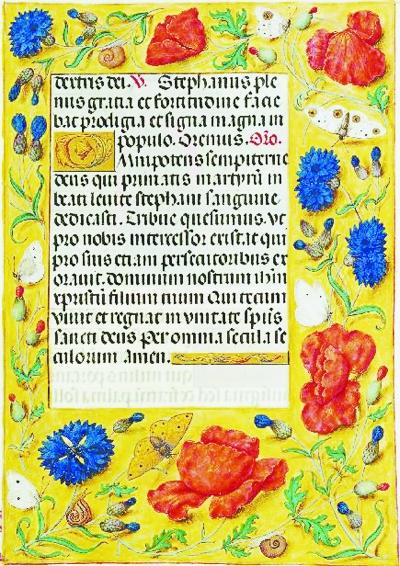 dextris dei. V. Stephanus ple
nus gratia et fortitudine facie
bat prodigia et signa magna in
populo. Oremus. Oro.
OMnipotens sempiterne
deus qui primitias martyrū in
beati leuite stephani sanguine
dedicasti. Tribue quesumus. vt
pro nobis intercessor existat qui
pro suis etiam persecutoribus ex
orauit. dominum nostrum ihm̄
xpristū filium tuum Qui tecum
viuit et regnat in vnitate spūs
sancti deus Per omnia secula se
culorum Amen.